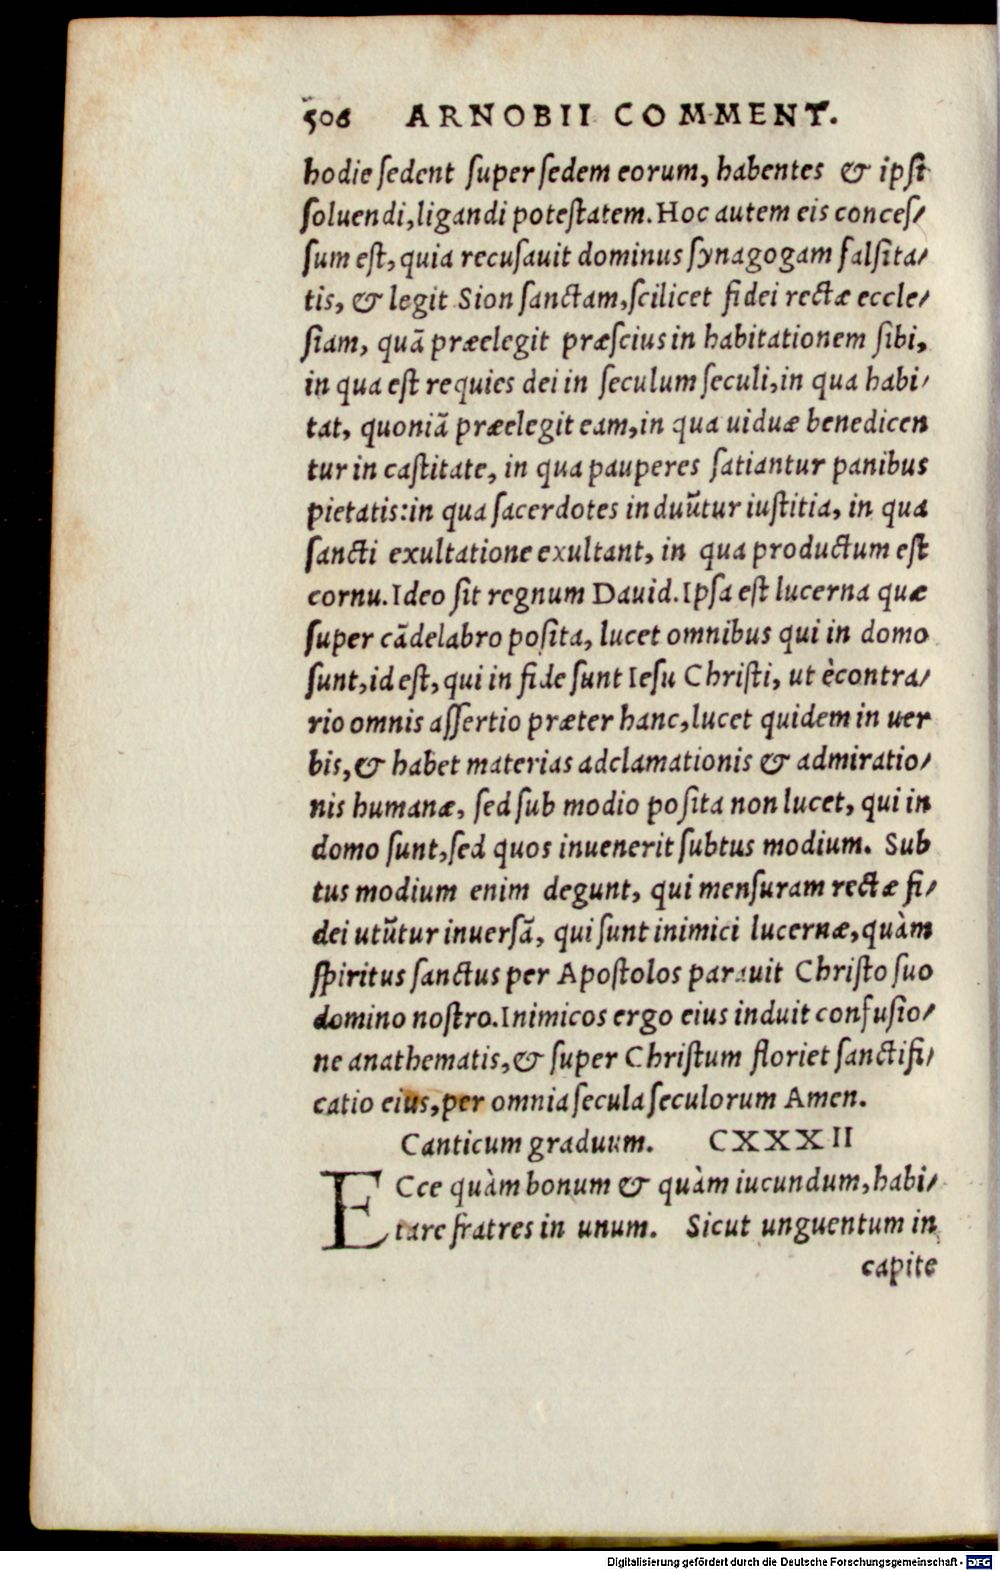 506 ARNOBII COMMENT.
hodie ſedent ſuper ſedem eorum, habentes & ipſi
ſoluendi, ligandi poteſtatem. Hoc autem eis conceſ/
ſum eſt, quia recuſauit dominus ſynagogam falſita/
tis, & legit Sion ſanctam, ſcilicet fidei rectæ eccle/
ſiam, quā præelegit præſcius in habitationem ſibi,
in qua eſt requies dei in ſeculum ſeculi, in qua habi/
tat, quoniā præelegit eam, in qua uiduæ benedicen
tur in caſtitate, in qua pauperes ſatiantur panibus
pietatis: in qua ſacerdotes induūtur iuſtitia, in qua
ſancti exultatione exultant, in qua productum eſt
cornu. Ideo ſit regnum Dauid. Ipſa eſt lucerna quæ
ſuper cādelabro poſita, lucet omnibus qui in domo
ſunt, id eſt, qui in fide ſunt Ieſu Chriſti, ut ècontra/
rio omnis aſſertio præter hanc, lucet quidem in uer
bis, & habet materias adclamationis & admiratio/
nis humanæ, ſed ſub modio poſita non lucet, qui in
domo ſunt, ſed quos inuenerit ſubtus modium. Sub
tus modium enim degunt, qui menſuram rectæ fi/
dei utūtur inuerſā, qui ſunt inimici lucernæ, quàm
ſpiritus ſanctus per Apoſtolos parauit Chriſto ſuo
domino noſtro. Inimicos ergo eius induit confuſio/
ne anathematis, & ſuper Chriſtum floriet ſanctifi/
catio eius, per omnia ſecula ſeculorum Amen.
Canticum graduum. CXXXII
ECce quàm bonum & quàm iucundum, habi/
tare fratres in unum. Sicut unguentum in
capite
Digitalisierung gefördert durch die Deutsche Forschungsgemeinschaft - DFG